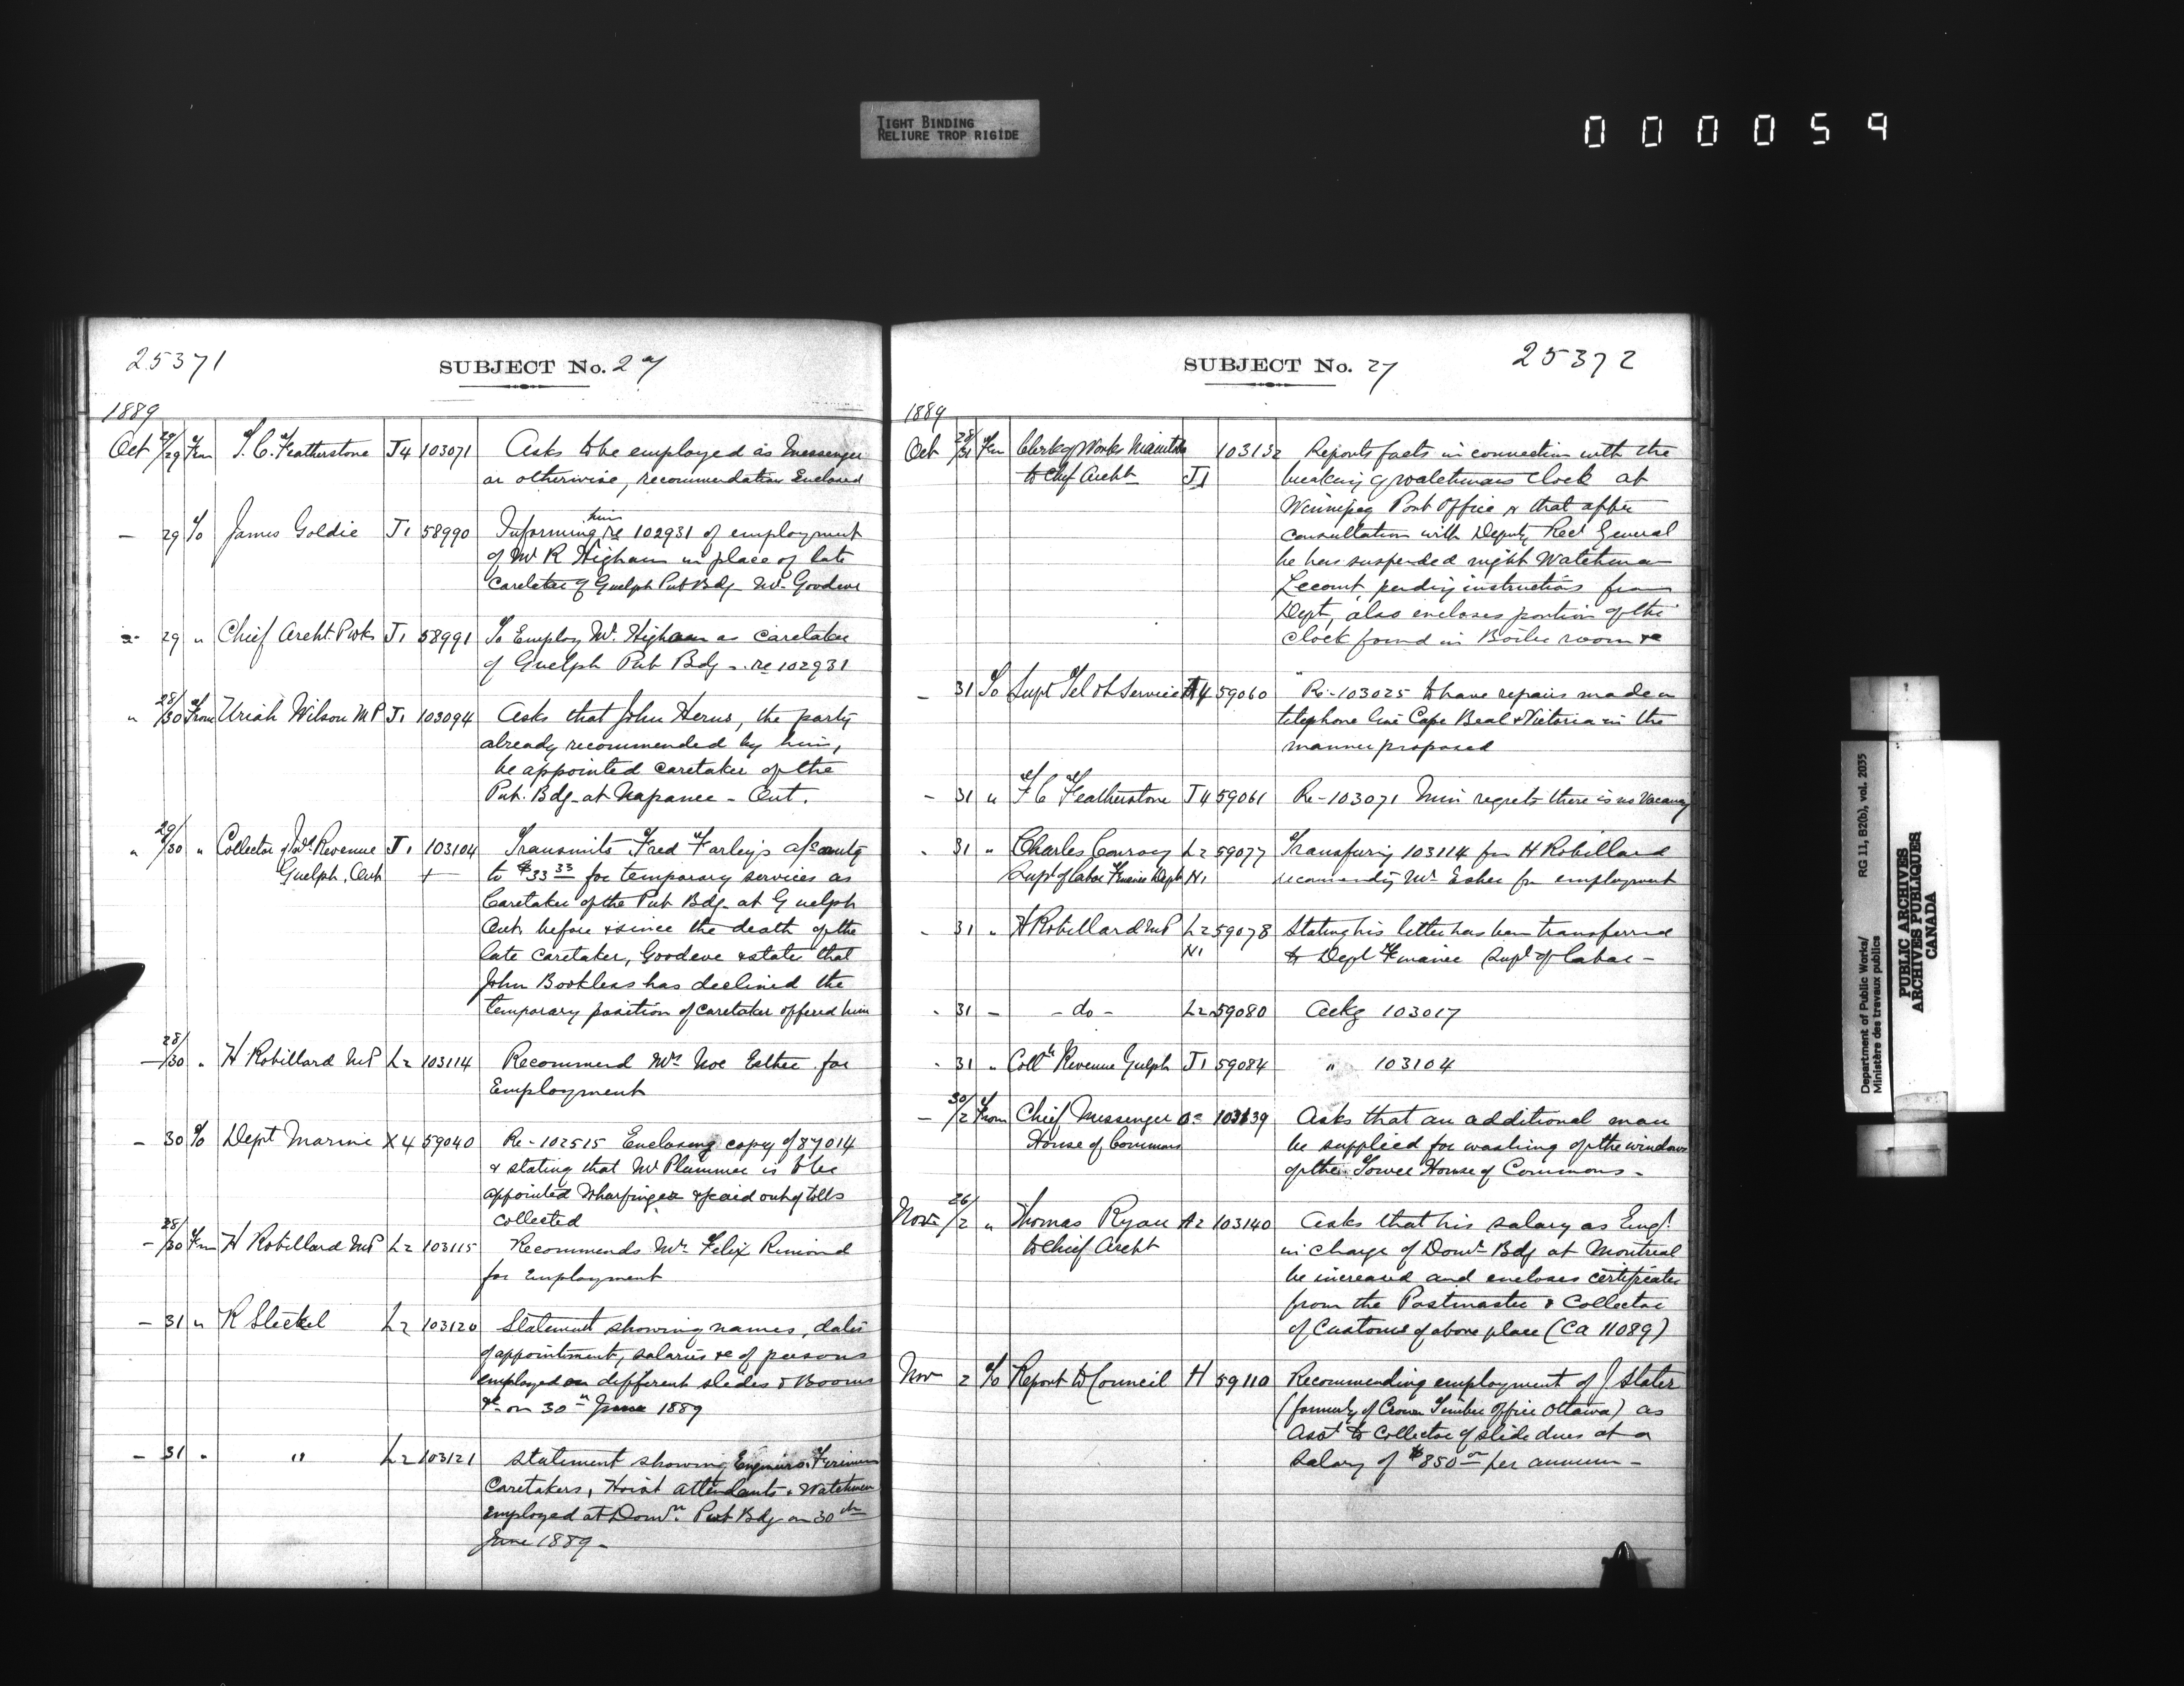 TIGHT BINDING
RELIURE TROP RIGIDE
000059
25371
SUBJECT No. 27
1889
Oct 29/29 Fm F. C. Featherstone J4 103071 Asks to be employed as Messenger
or otherwise, recommendation Enclosed
— 29 To James Goldie J1 58990 Informing him re 102931 of employment
of Mr R Higham in place of late
Caretaker of Guelph Pub Bdg Mr. Goodeve
- 29 " Chief Archt. P Wks J1 58991 To Employ Mr. Higham as Caretaker
of Guelph Pub Bdg - re 102931
" 28/30 From Uriah Wilson MP J1 103094 Asks that John Herns, the party
already recommended by him,
be appointed caretaker of the
Pub. Bdg. at Napanee - Ont.
" 29/30 " Collector of Ind. Revenue J1 103104 Transmits Fred Farley's a/c amtg
Guelph. Ont + to $33 33 for temporary services as
Caretaker of the Pub Bdg. at Guelph
Ont. before & since the death of the
late Caretaker, Goodeve & states that
John Bookless has declined the
temporary position of Caretaker offered him
— 28/30 " H Robillard MP L2 103114 Recommend Mr. Noe Esthee for
Employment
- 30 To Dept Marine X4 59040 Re - 102515 Enclosing copy of 87014
& stating that Mr Plummer is to be
appointed Wharfinger & paid out of tolls
collected
- 28/30 Fm H Robillard MP L2 103115 Recommends Mr. Felix Rimond
for Employment
- 31 " R Steckel L2 103120 Statement showing names, dates
of appointment, salaries &c of persons
employed on different slides & Booms
&c. on 30th June 1889
- 31 " " L2 103121 Statement showing Engineers, Firemen
Caretakers, Hoist attendants & Watchmen
employed at Domn. Pub Bdg on 30th
June 1889 -
SUBJECT No. 27
25372
1889
Oct 28/31 Fm Clerk of Works Manitoba 103132 Reports facts in connection with the
to Chief Archt J1 breaking of watchmans clock at
Winnipeg Post Office & that after
consultation with Deputy Rec General
he has suspended night Watchman
Lecourt pending instructions from
Dept, also encloses portion of the
clock found in Boiler room &c
- 31 To Supt Tel Service 4 59060 Re - 103025 to have repairs made in
telephone line Cape Beal & Victoria in the
manner proposed
- 31 " F C Featherstone J4 59061 Re - 103071 Min regrets there is no Vacancy
- 31 " Charles Conroy L2 59077 Transfering 103114 fm H Robillard
Supt of labor Finance Dept N1 recommending Mr. Esthee for employment
- 31 " H Robillard MP L2 59078 Stating his letter has been transferred
N1 to Dept Finance Supt of labor -
- 31 - - do - L2 59080 Ackg 103017
- 31 " Coll Revenue Gulph J1 59084 " 103104
- 30/2 From Chief Messenger 103139 Asks that an additional man
House of Commons be supplied for washing of the windows
of the Tower House of Commons -
Nov 26/2 " Thomas Ryan A2 103140 Asks that his salary as Engr.
to Chief Archt in charge of Domn Bdg at Montreal
be increased and encloses certificates
from the Postmaster & Collector
of Customs of above place (Ca 11089)
Nov 2 To Report to Council H 59110 Recommending employment of J Slater
(formerly of Crown Timber Office Ottawa) as
Asst to Collector of slide dues at a
salary of $850 00 per annum -
Department of Public Works/
Ministère des travaux publics
RG 11, B2(b), vol. 2035
PUBLIC ARCHIVES
ARCHIVES PUBLIQUES
CANADA